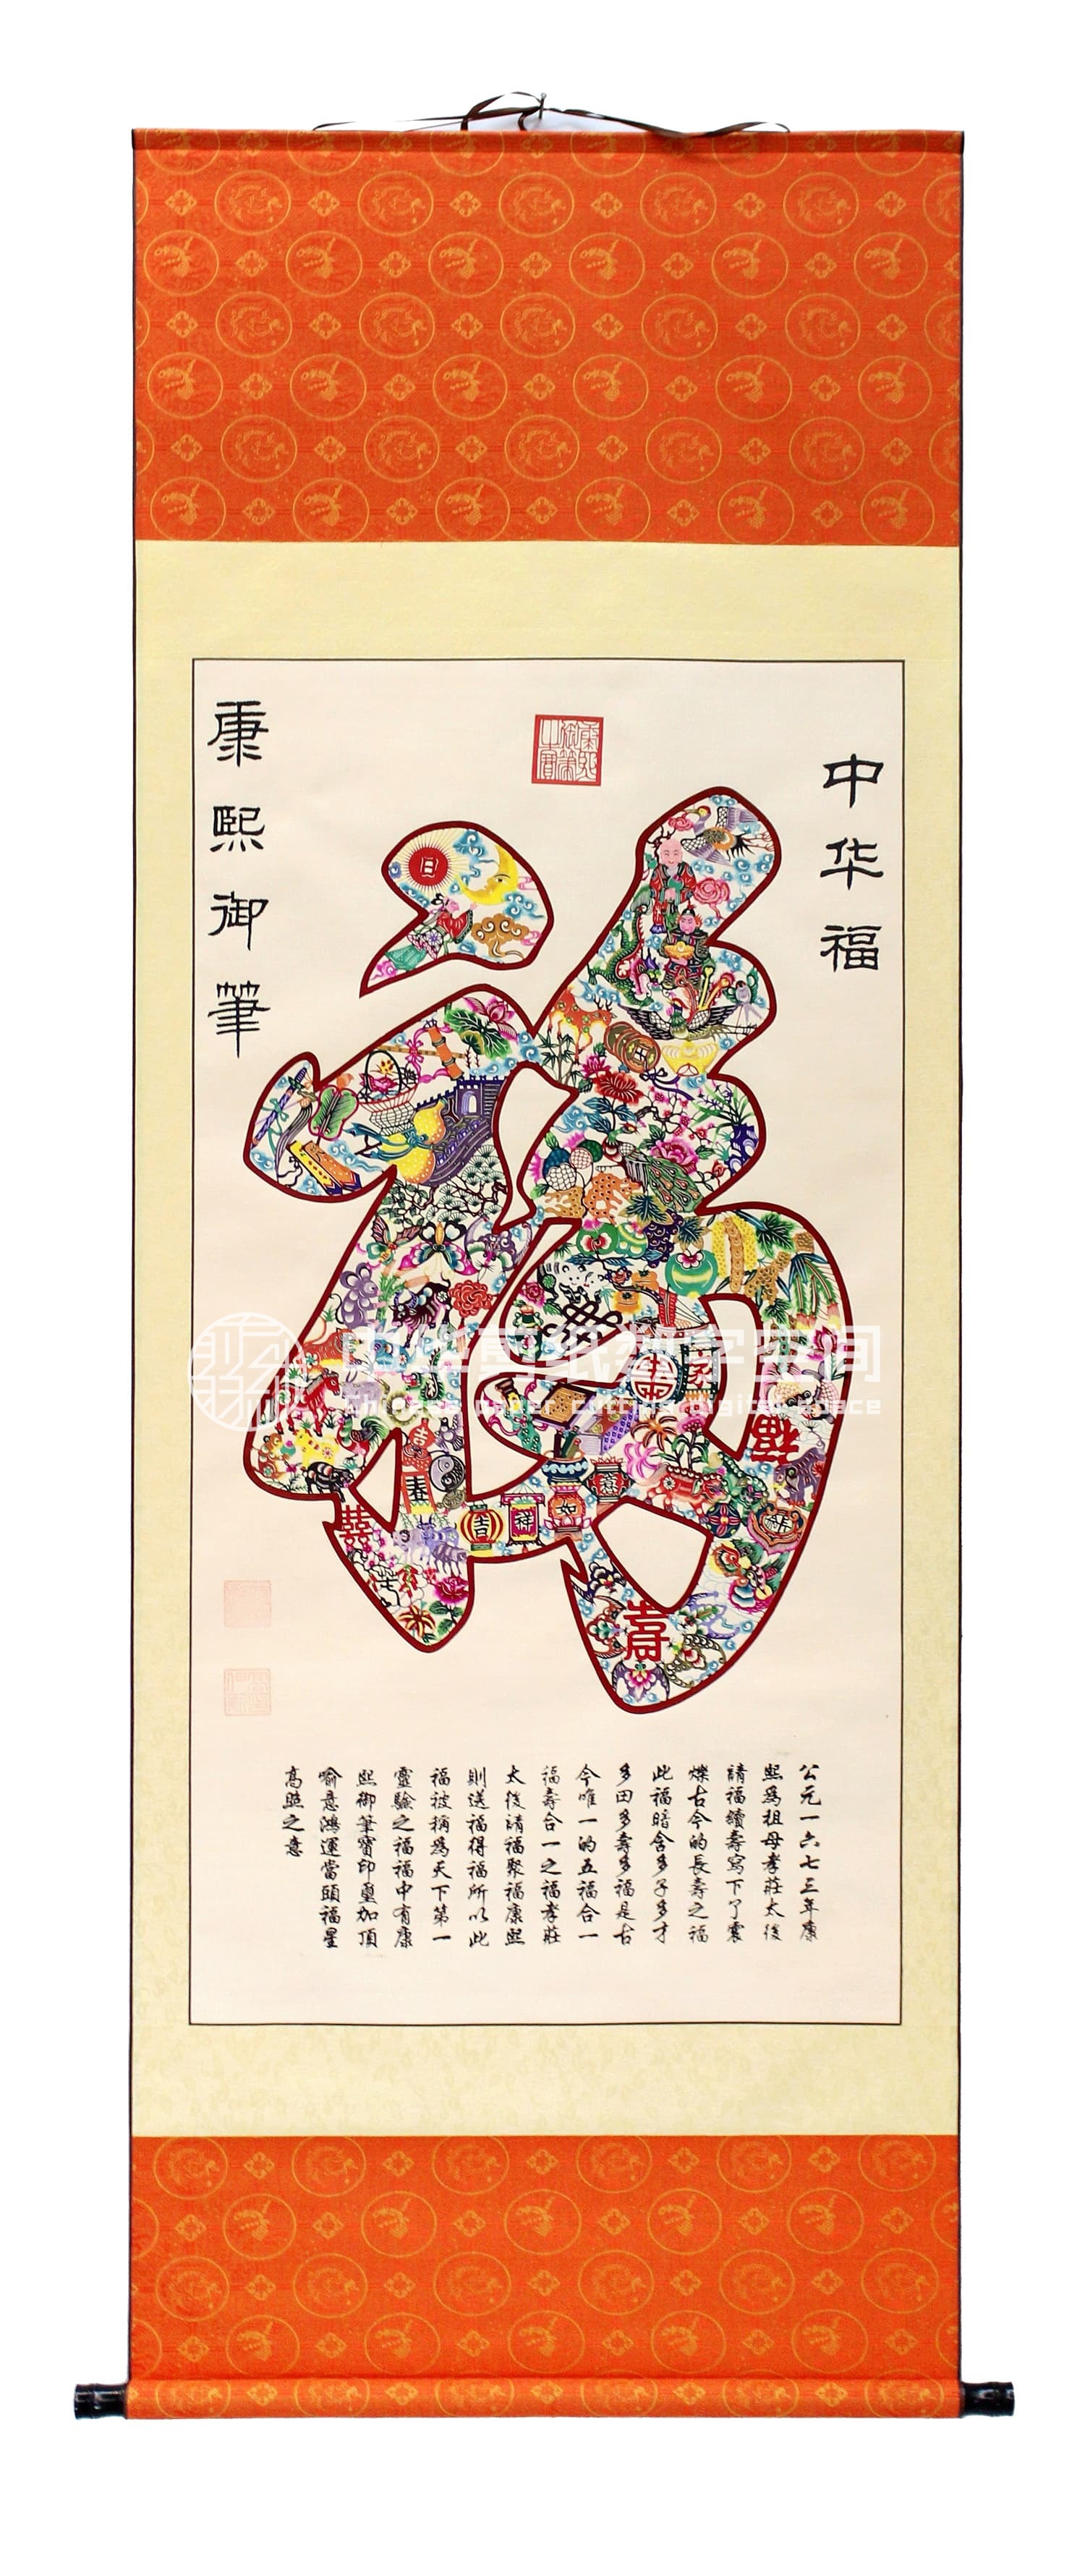 中华福
康熙御筆
康熙御筆之寶
福
日
吉
春
囍
吉
祥
如
福
壽
公元一六七三年康
熙爲祖母孝莊太後
請福續壽寫下了震
爍古今的長壽之福
此福暗含多子多才
多田多壽多福是古
今唯一的五福合一
福壽合一之福孝莊
太後請福聚福康熙
則送福得福所以此
福被稱爲天下第一
靈驗之福福中有康
熙御筆寶印璽加頂
喻意鴻運當頭福星
高照之意
中华剪纸数字空间
Chinese paper cutting digital space